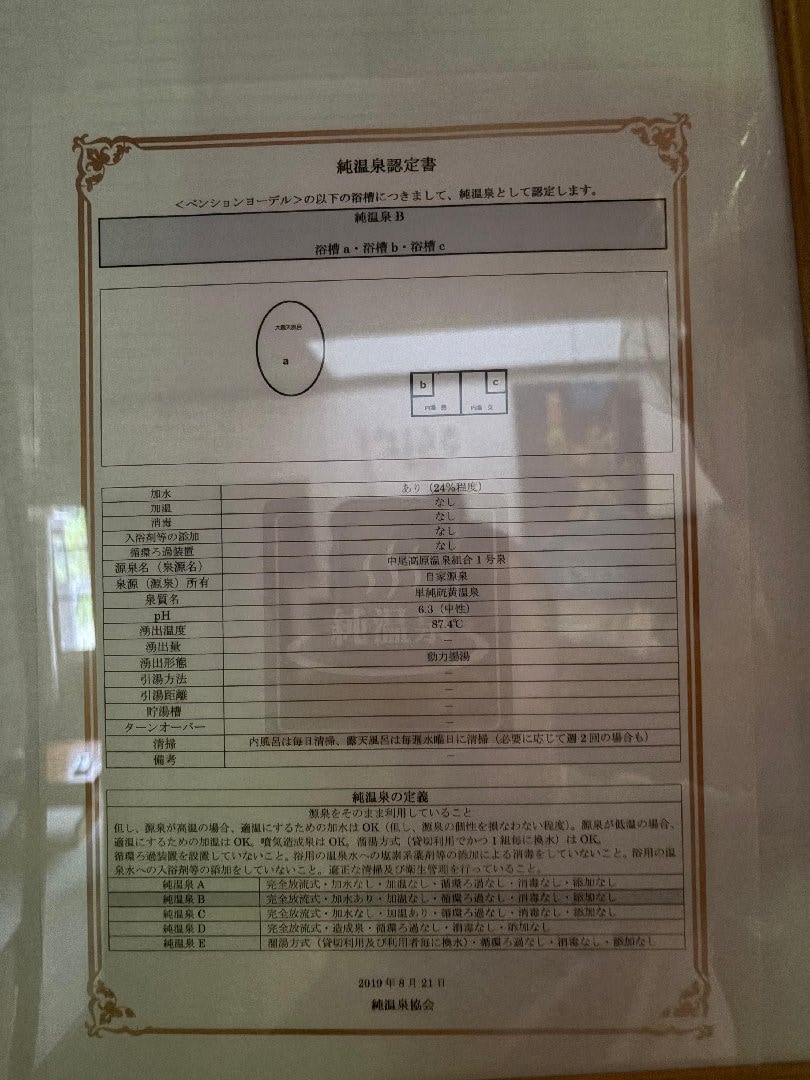 純温泉認定書
<ペンションヨーデル>の以下の浴槽につきまして、純温泉として認定します。
純温泉B
浴槽a・浴槽b・浴槽c
大露天風呂
a
b
c
内湯 男
内湯 女
加水 あり（24%程度）
加温 なし
消毒 なし
入浴剤等の添加 なし
循環ろ過装置 なし
源泉名（泉源名） 中尾高原温泉組合1号泉
泉源（源泉）所有 自家源泉
泉質名 単純硫黄温泉
pH 6.3（中性）
湧出温度 87.4℃
湧出量 ―
湧出形態 動力揚湯
引湯方法 ―
引湯距離 ―
貯湯槽 ―
ターンオーバー ―
清掃 内風呂は毎日清掃、露天風呂は毎週水曜日に清掃（必要に応じて週2回の場合も）
備考 ―
純温泉の定義
源泉をそのまま利用していること
但し、源泉が高温の場合、適温にするための加水はOK（但し、源泉の個性を損なわない程度）。源泉が低温の場合、
適温にするための加温はOK。噴気造成泉はOK。溜湯方式（貸切利用でかつ1組毎に換水）はOK。
循環ろ過装置を設置していないこと。浴用の温泉水への塩素系薬剤等の添加による消毒をしていないこと。浴用の温
泉水への入浴剤等の添加をしていないこと。適正な清掃及び衛生管理を行っていること。
純温泉A 完全放流式・加水なし・加温なし・循環ろ過なし・消毒なし・添加なし
純温泉B 完全放流式・加水あり・加温なし・循環ろ過なし・消毒なし・添加なし
純温泉C 完全放流式・加水なし・加温あり・循環ろ過なし・消毒なし・添加なし
純温泉D 完全放流式・造成泉・循環ろ過なし・消毒なし・添加なし
純温泉E 溜湯方式（貸切利用及び利用者毎に換水）・循環ろ過なし・消毒なし・添加なし
2019年8月21日
純温泉協会